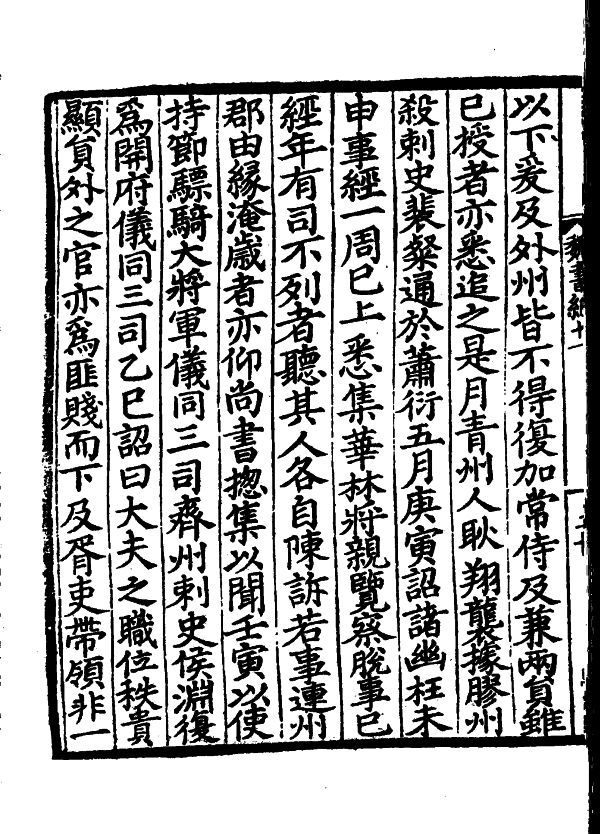 以下爰及外州皆不得復加常侍及兼兩負雖
已授者亦悉追之是月青州人耿翔襲據膠州
殺刺史裴粲通於蕭衍五月庚寅詔諸幽枉未
申事經一周已上悉集華林將親覽察脫事已
經年有司不列者聽其人各自陳訴若事連州
郡由緣淹歲者亦仰尚書揔集以聞壬寅以使
持節驃騎大將軍儀同三司齊州刺史侯淵復
爲開府儀同三司乙巳詔曰大夫之職位秩貴
顯負外之官亦爲匪賤而下及胥吏帶領非一
魏書紀十一